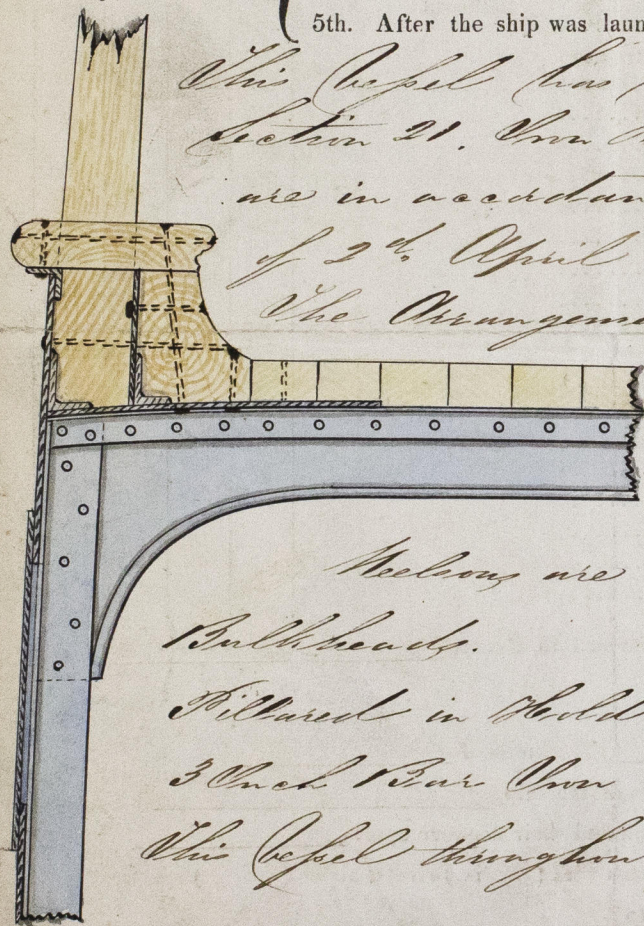 5th. After the ship was laun
This Vessel has
Section 21. Iron
are in accordan
of 2d. April
The Arrangeme
Keelsons are
Bulkheads.
Pillared in Hold
3 Inch Bar Iron
This Vessel throughou